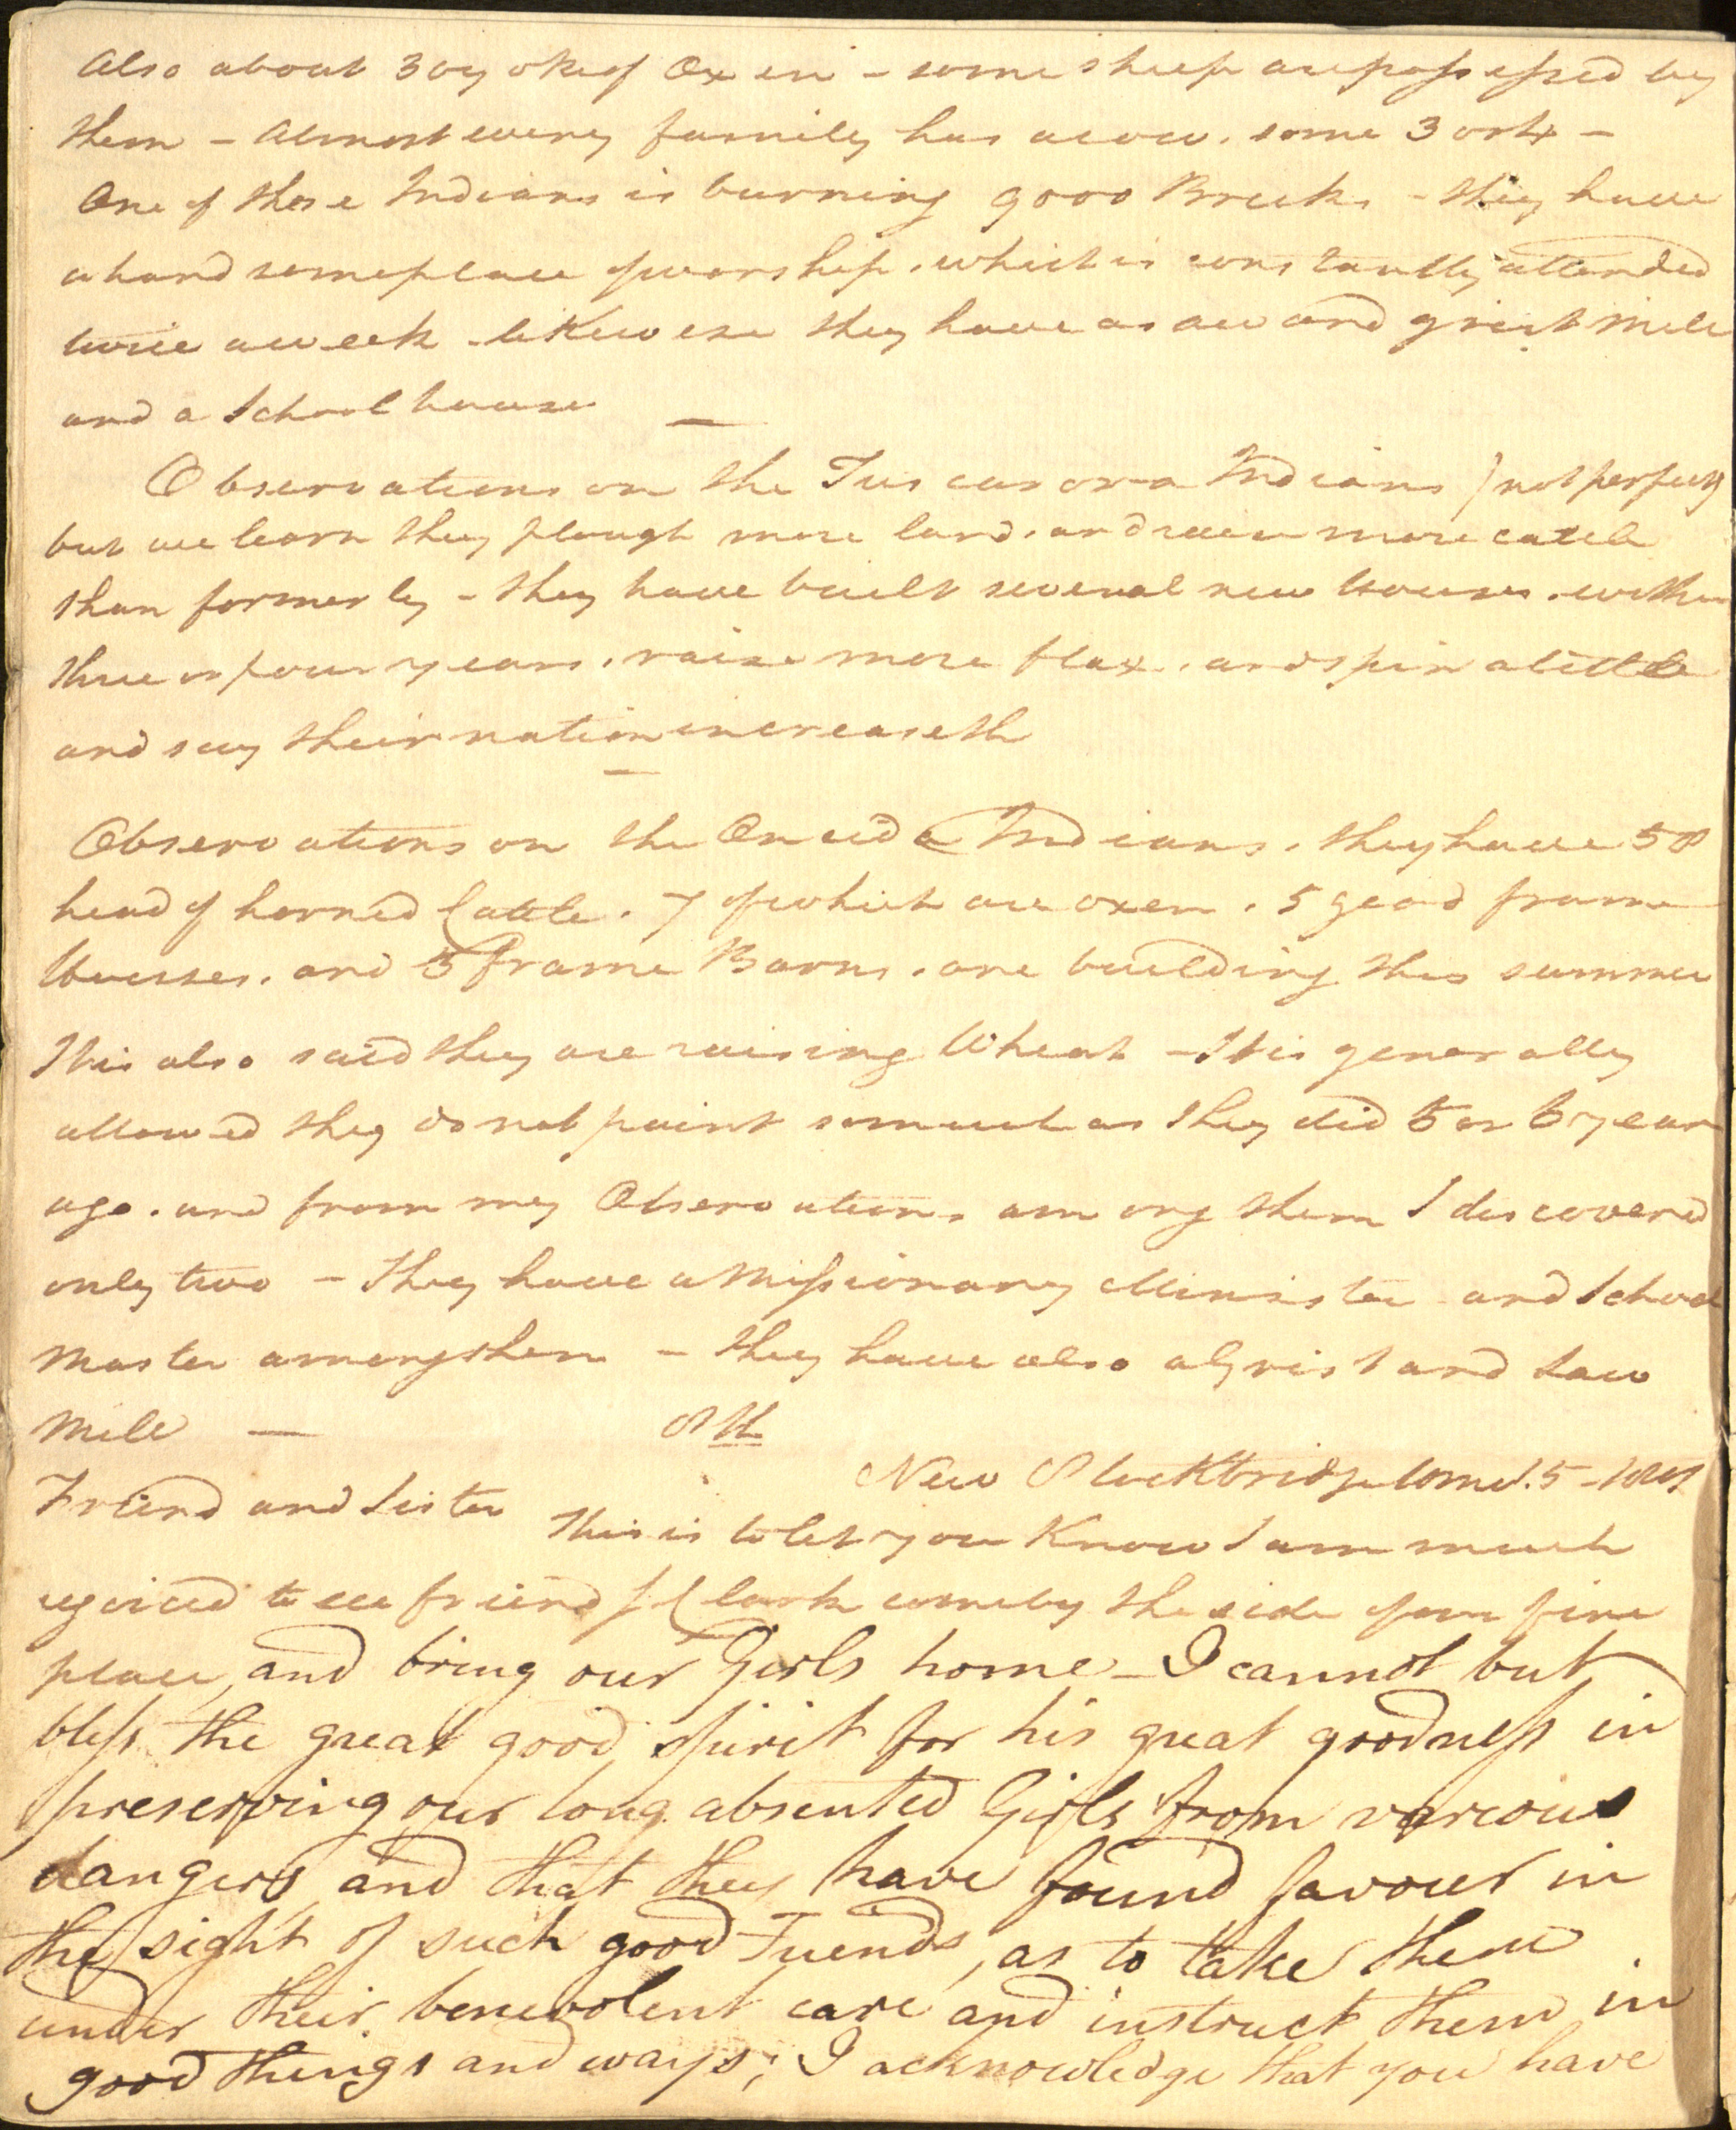 Also about 30 yoke of Oxen - some sheep are possessed by
them - Almost every family has a cow, some 3 or 4 -
One of these Indians is burning 9000 Bricks - they have
a handsome place of worship, which is constantly attended
twice a week - likewise they have a saw and grist mill
and a School house —
Observations on the Tuscarora Indians / not perfect
but we learn they plough more land, and more cattle
than formerly - they have built several new Houses, within
three or four years, raise more flax, and spin a little
and say their nation increaseth
Observations on the Oneida Indians, they have 58
head of horned Cattle, 7 of which are oxen, 5 good frame
Houses, and 3 frame Barns, one building this summer
It is also said they are raising Wheat - It is generally
allowed they do not paint so much as they did 5 or 6 year
ago, and from my Observations among them I discovered
only two - They have a Missionary Minister and School
Master among them - they have also a Grist and Saw
Mill — 8th
New Stockbridge 5
Friend and Sister This is to let you Know I am much
rejoiced to see friend J Clark come by the side of our fire
place, and bring our Girls home - I cannot but
bless the great good spirit for his great goodness in
preserving our long absented Girls from various
dangers, and that they have found favour in
the sight of such good Friends, as to take them
under their benevolent care and instruct them in
good things and ways; I acknowledge that you have